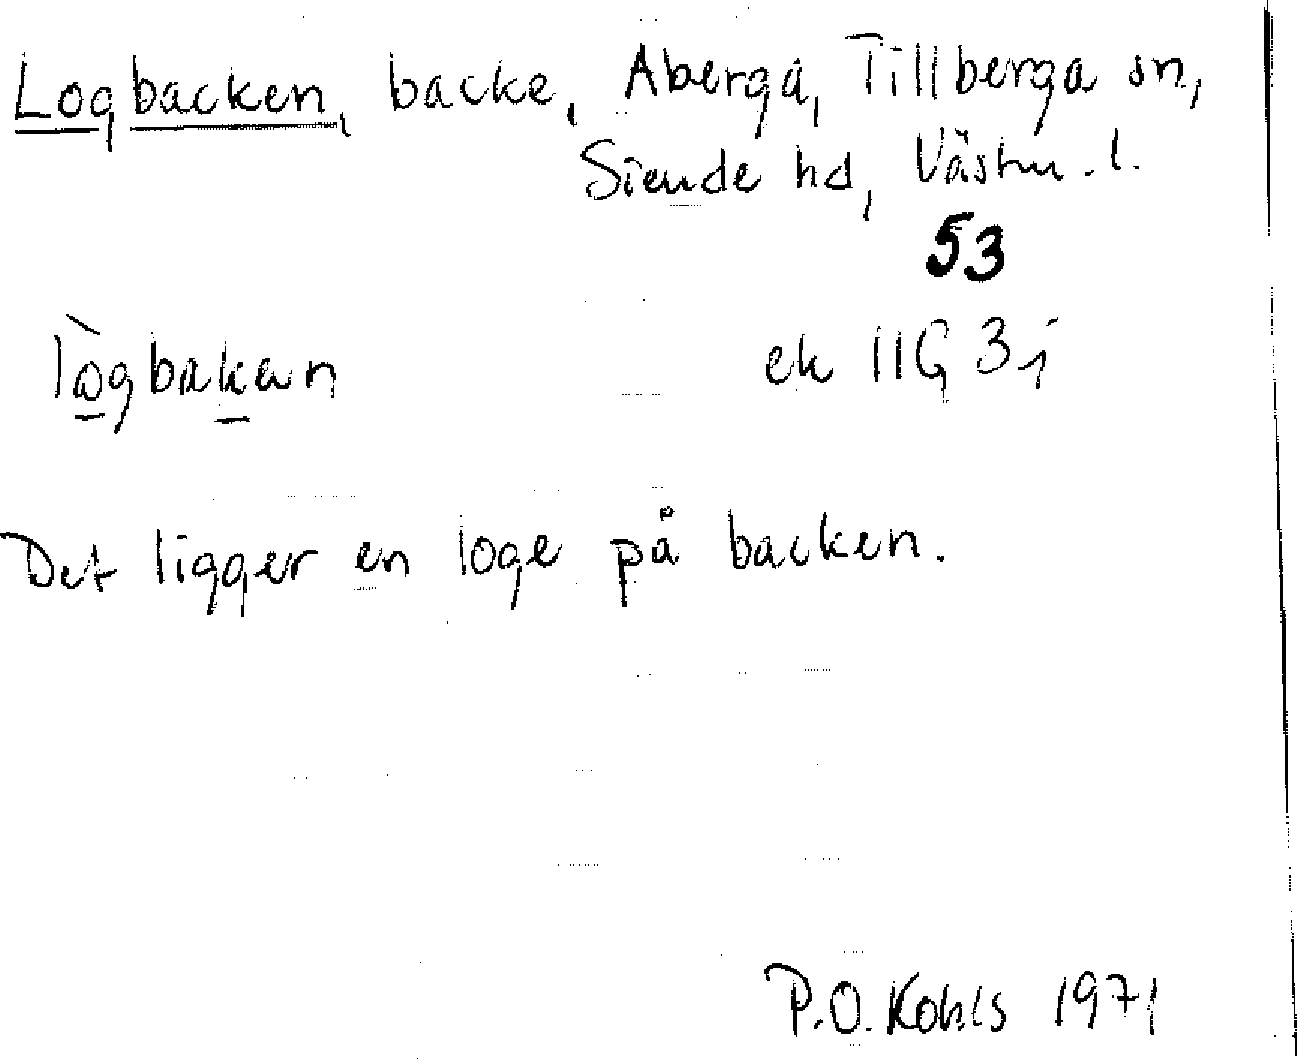 Logbacken, backe, Aberga, Tillberga sn,
Siende hd, Västm. l.
53
lògbakan ek 11G 3j
Det ligger en loge på backen.
P.O. Kohls 1971